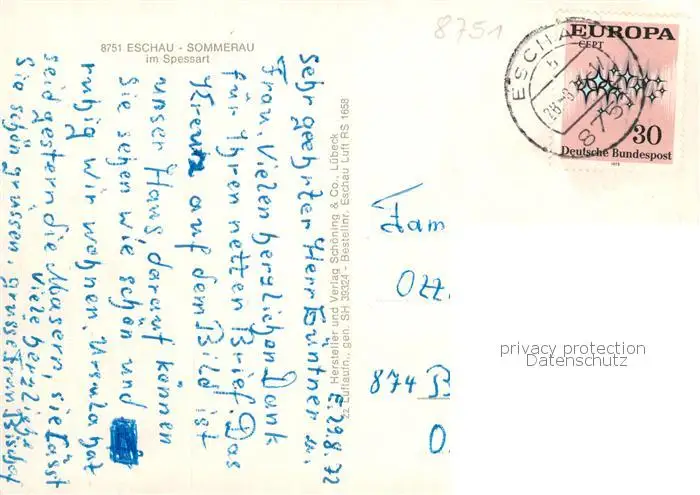 8751 ESCHAU - SOMMERAU
im Spessart
8751
E, 29.8.72
Sehr geehrter Herr Güntner u.
Frau. Vielen herzlichen Dank
für Ihren netten Brief. Das
Kreuz auf dem Bild ist
unser Haus darauf können
Sie sehen wie schön und
ruhig wir wohnen. Ursula hat
seid gestern die Masern, sie lässt
Sie schön grüssen,
Viele herzliche
grüsse Fam. Bischof
Hersteller und Verlag Schöning & Co., Lübeck
Luftaufn., gen. SH 39324 - Bestellnr. Eschau Luft RS 1658
ESCHAU
8751
EUROPA
CEPT
30
Deutsche Bundespost
1972
Fam
Ott
874 B
privacy protection
Datenschutz